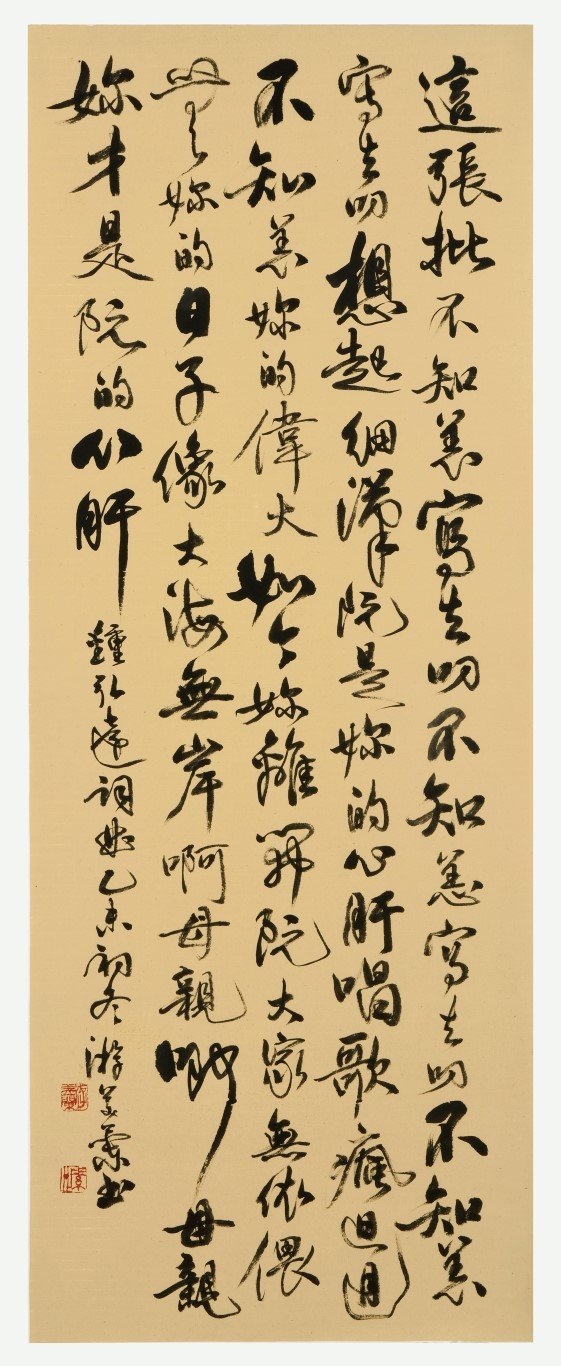 這張批不知恙寫去叨不知恙寫去叨不知恙
寫去叨想起細漢阮是妳的心肝唱歌瘋𨑨迌
不知恙妳的偉大如今妳離開阮大家無依偎
妳的日子像大海無岸啊母親啊母親
妳才是阮的心肝 鍾弘遠詞 乙未初冬 游美蘭書